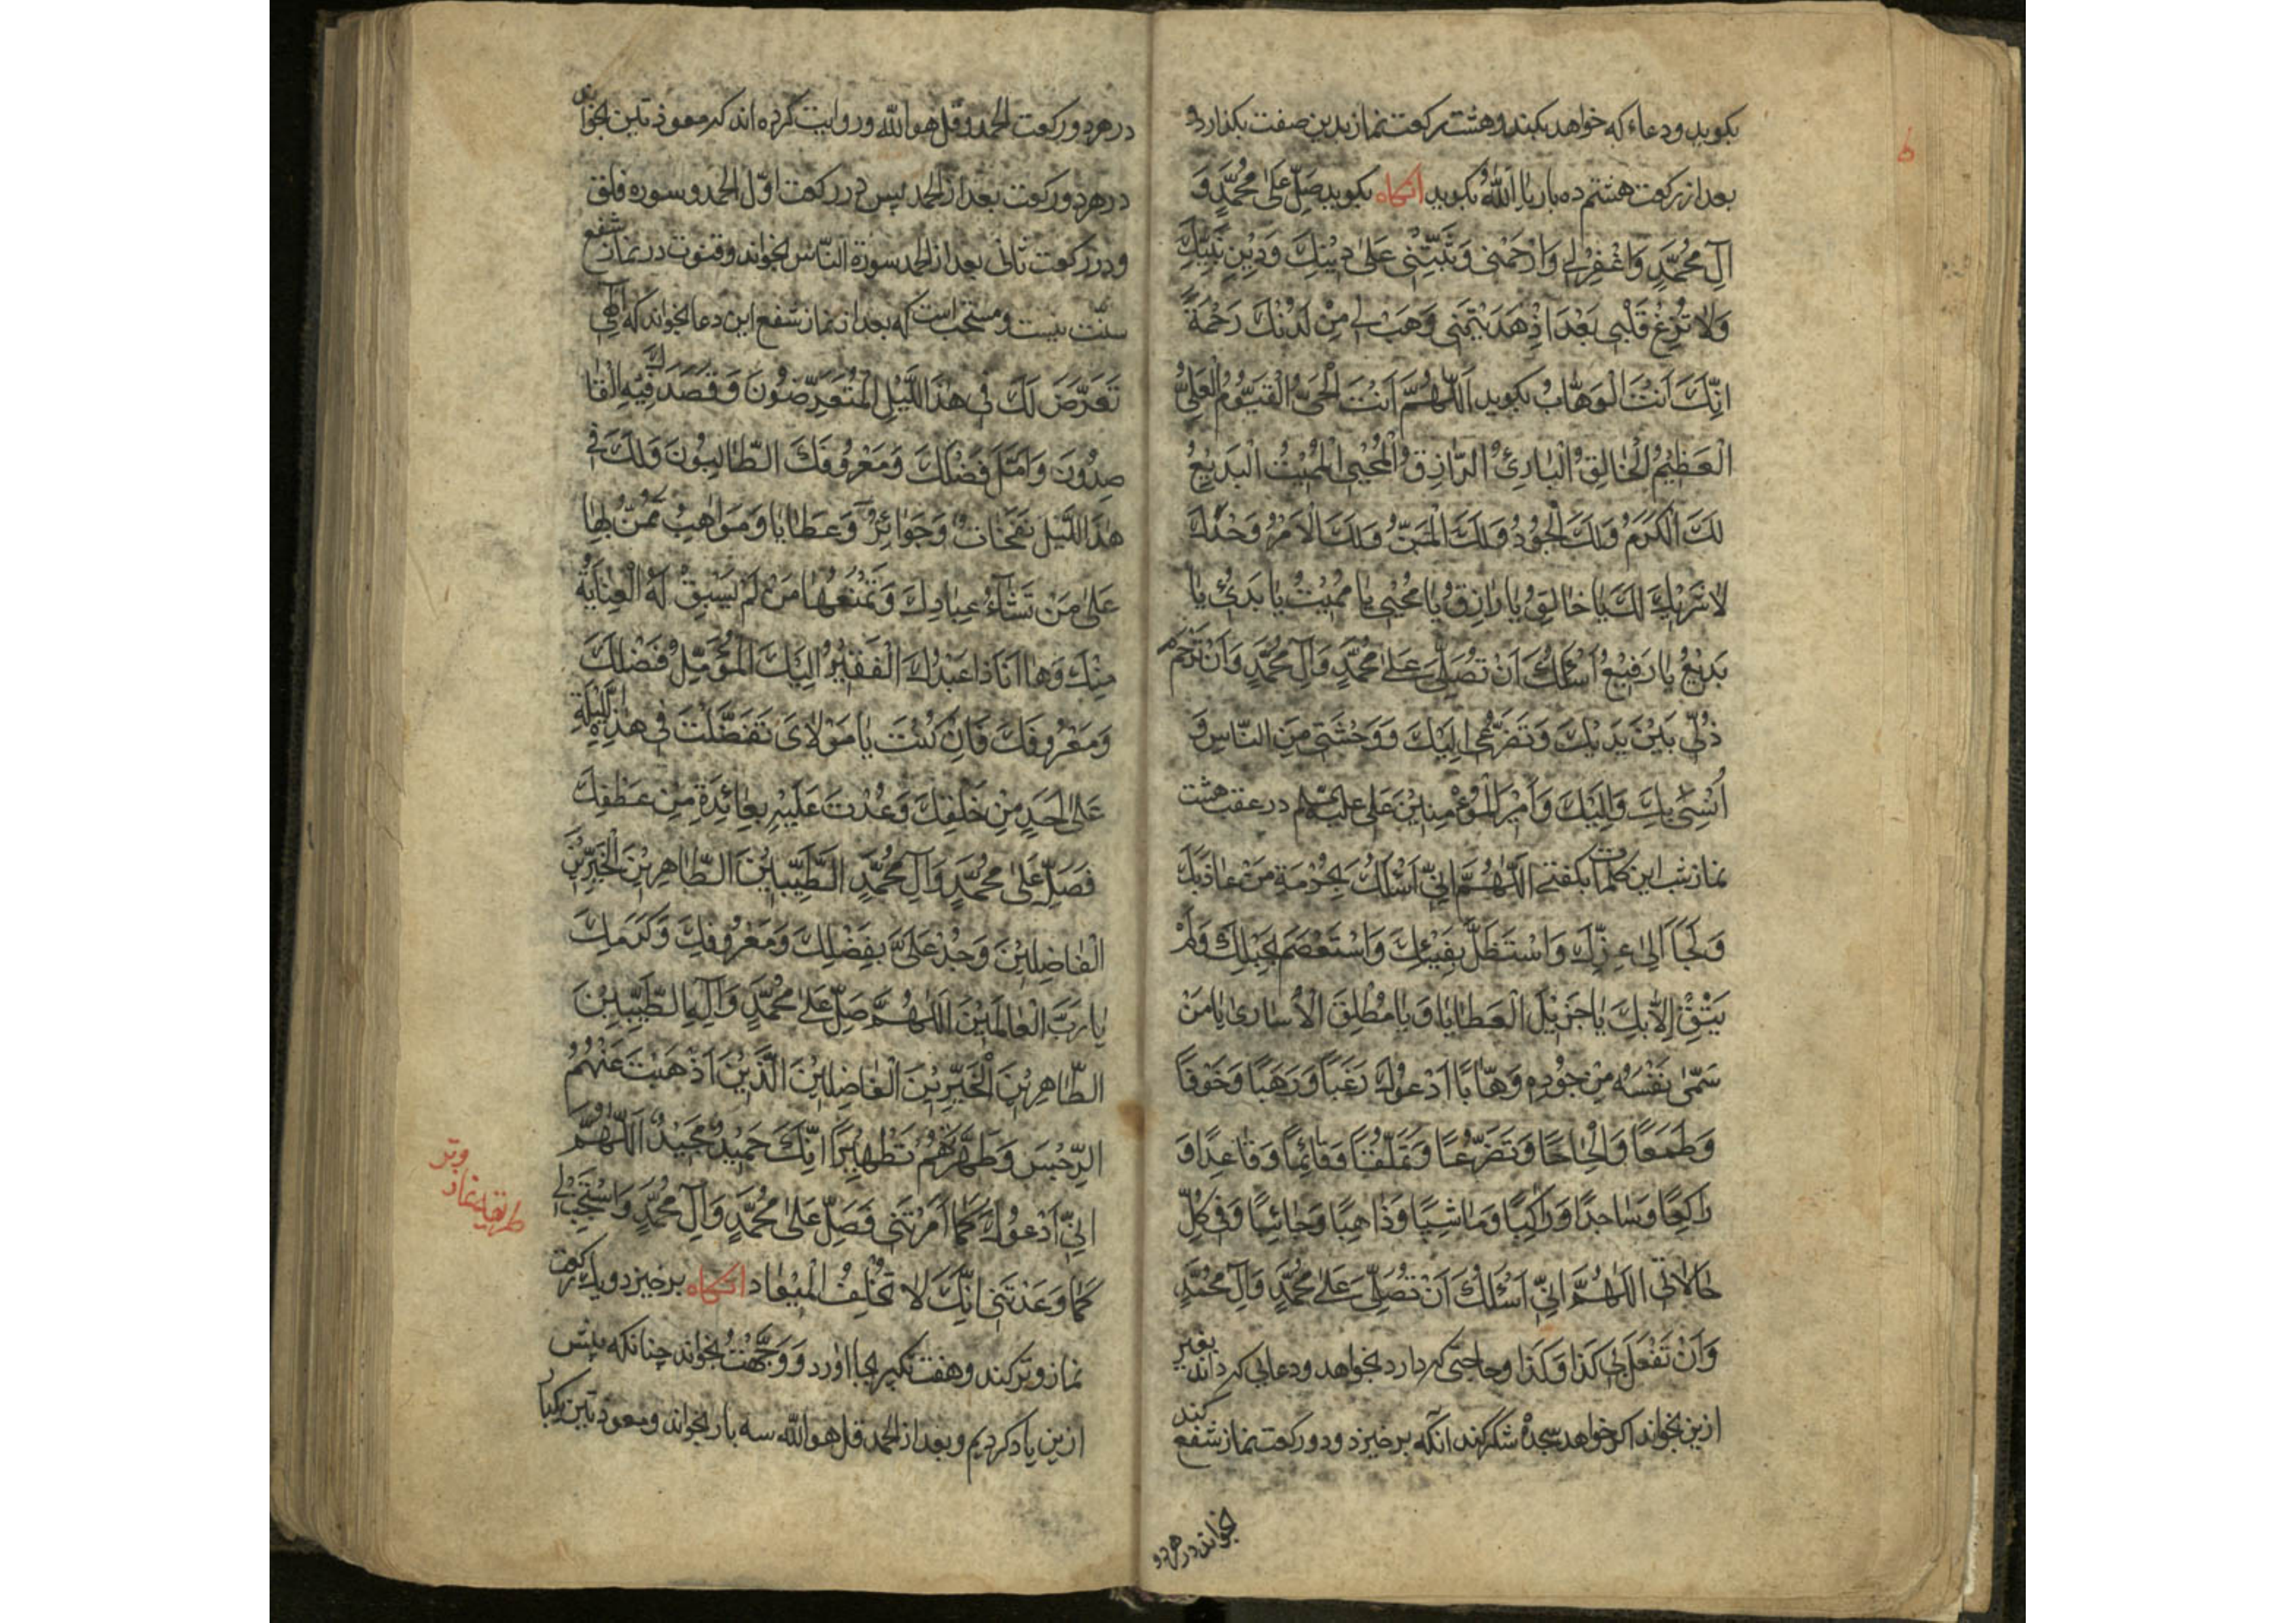 بکوید ودعاء که خواهد بکند وهشت رکعت نماز بدین صفت بکذارد و
بعد از رکعت هشتم ده بار یا اَللّٰهُ بکوید آنکاه بکوید صَلِّ عَلیٰ مُحَمَّدٍ وَ
آلِ مُحَمَّدٍ وَاغْفِرْ لِی وَارْحَمْنی وَثَبِّتْنی عَلیٰ دینِكَ وَدینِ نَبِیِّكَ
وَلا تُزِغْ قَلْبی بَعْدَ اِذْ هَدَیْتَنی وَهَبْ لِی مِنْ لَدُنْكَ رَحْمَةً
اِنَّكَ اَنْتَ الْوَهّابُ بکوید اَللّٰهُمَّ اَنْتَ الْحَیُّ الْقَیُّومُ الْعَلِیُّ
الْعَظیمُ الْخالِقُ الْبارِئُ الرّازِقُ الْمُحْیِی الْمُمیتُ الْبَدیعُ
لَكَ الْكَرَمُ وَلَكَ الْجُودُ وَلَكَ الْمَنُّ وَلَكَ الْاَمْرُ وَحْدَكَ
لا شَریكَ لَكَ یا خالِقُ یا رازِقُ یا مُحْیی یا مُمیتُ یا بَدیُٔ یا
بَدیعُ یا رَفیعُ اَسْئَلُكَ اَنْ تُصَلِّیَ عَلیٰ مُحَمَّدٍ وَآلِ مُحَمَّدٍ وَاَنْ تَرْحَمَ
ذُلّی بَیْنَ یَدَیْكَ وَتَضَرُّعی اِلَیْكَ وَوَحْشَتی مِنَ النّاسِ وَ
اُنْسی بِكَ وَاِلَیْكَ وَاَمیرَالْمُؤْمِنینَ عَلی علیه السلم در عقب هشت
نماز شب این کلمات بکفتی اَللّٰهُمَّ اِنّی اَسْئَلُكَ بِحُرْمَةِ مَنْ عاذَ بِكَ
وَلَجَاَ اِلیٰ عِزِّكَ وَاسْتَظَلَّ بِفَیْئِكَ وَاسْتَعْصَمَ بِحَبْلِكَ وَلَمْ
یَثِقْ اِلّا بِكَ یا جَزیلَ الْعَطایا وَیا مُطْلِقَ الْاُساریٰ یا مَنْ
سَمّیٰ نَفْسَهُ مِنْ جُودِهِ وَهّابًا اَدْعُوكَ رَغَبًا وَرَهَبًا وَخَوْفًا
وَطَمَعًا وَاِلْحاحًا وَتَضَرُّعًا وَتَمَلُّقًا وَقائِمًا وَقاعِدًا وَ
راکِعًا وَساجِدًا وَراکِبًا وَماشِیًا وَذاهِبًا وَجائِیًا وَفی کُلِّ
حالاتی اَللّٰهُمَّ اِنّی اَسْئَلُكَ اَنْ تُصَلِّیَ عَلیٰ مُحَمَّدٍ وَآلِ مُحَمَّدٍ
وَاَنْ تَفْعَلَ بی کَذا وَکَذا وحاجتی که دارد بخواهد ودعایی که داند بغیر
ازین بخواند اکر خواهد سجدهٔ شکر کند آنکه برخیزد ودو رکعت نماز شفع کند
بخواند در هر دو
در هر دو رکعت الحمد وقل هو الله وروایت کرده اند که معوذتین بخواند
در هر دو رکعت بعد از الحمد پس در رکعت اوّل الحمد وسوره فلق
ودر رکعت ثانی بعد از الحمد سورة النّاس بخواند وقنوت در نماز شفع
سنّت نیست ومستحب است که بعد از نماز شفع این دعا بخواند که اِلٰهی
تَعَرَّضَ لَكَ فی هٰذَا اللَّیْلِ الْمُتَعَرِّضُونَ وَقَصَدَكَ فِیهِ الْقا
صِدُونَ وَاَمَّلَ فَضْلَكَ وَمَعْرُوفَكَ الطّالِبُونَ وَلَكَ فی
هٰذَا اللَّیْلِ نَفَحاتٌ وَجَوائِزُ وَعَطایا وَمَواهِبُ تَمُنُّ بِها
عَلیٰ مَنْ تَشاءُ عِبادِكَ وَتَمْنَعُها مَنْ لَمْ یَسْبِقْ لَهُ الْعِنایَةُ
مِنْكَ وَها اَنَا ذا عَبْدُكَ الْفَقیرُ اِلَیْكَ الْمُؤَمِّلُ فَضْلَكَ
وَمَعْرُوفَكَ فَاِنْ کُنْتَ یا مَوْلایَ تَفَضَّلْتَ فی هٰذِهِ اللَّیْلَةِ
عَلیٰ اَحَدٍ مِنْ خَلْقِكَ وَعُدْتَ عَلَیْهِ بِعائِدَةٍ مِنْ عَطْفِكَ
فَصَلِّ عَلیٰ مُحَمَّدٍ وَآلِ مُحَمَّدٍ الطَّیِّبینَ الطّاهِرینَ الْخَیِّرینَ
الْفاضِلینَ وَجُدْ عَلَیَّ بِفَضْلِكَ وَمَعْرُوفِكَ وَکَرَمِكَ
یا رَبَّ الْعالَمینَ اَللّٰهُمَّ صَلِّ عَلیٰ مُحَمَّدٍ وَآلِهِ الطَّیِّبینَ
الطّاهِرینَ الْخَیِّرینَ الْفاضِلینَ الَّذینَ اَذْهَبْتَ عَنْهُمُ
الرِّجْسَ وَطَهَّرْتَهُمْ تَطْهیرًا اِنَّكَ حَمیدٌ مَجیدٌ اَللّٰهُمَّ
اِنّی اَدْعُوكَ کَما اَمَرْتَنی فَصَلِّ عَلیٰ مُحَمَّدٍ وَآلِ مُحَمَّدٍ وَاسْتَجِبْ لی
کَما وَعَدْتَنی اِنَّكَ لا تُخْلِفُ الْمیعاد آنکاه برخیزد ویك رکعت
نماز وتر کند وهفت تکبیر بجا آورد و وَجَّهْتُ بخواند چنانکه پیش
ازین یاد کردیم وبعد از الحمد قل هو الله سه بار بخواند ومعوذتین یکبار
طریقه نماز
وتر